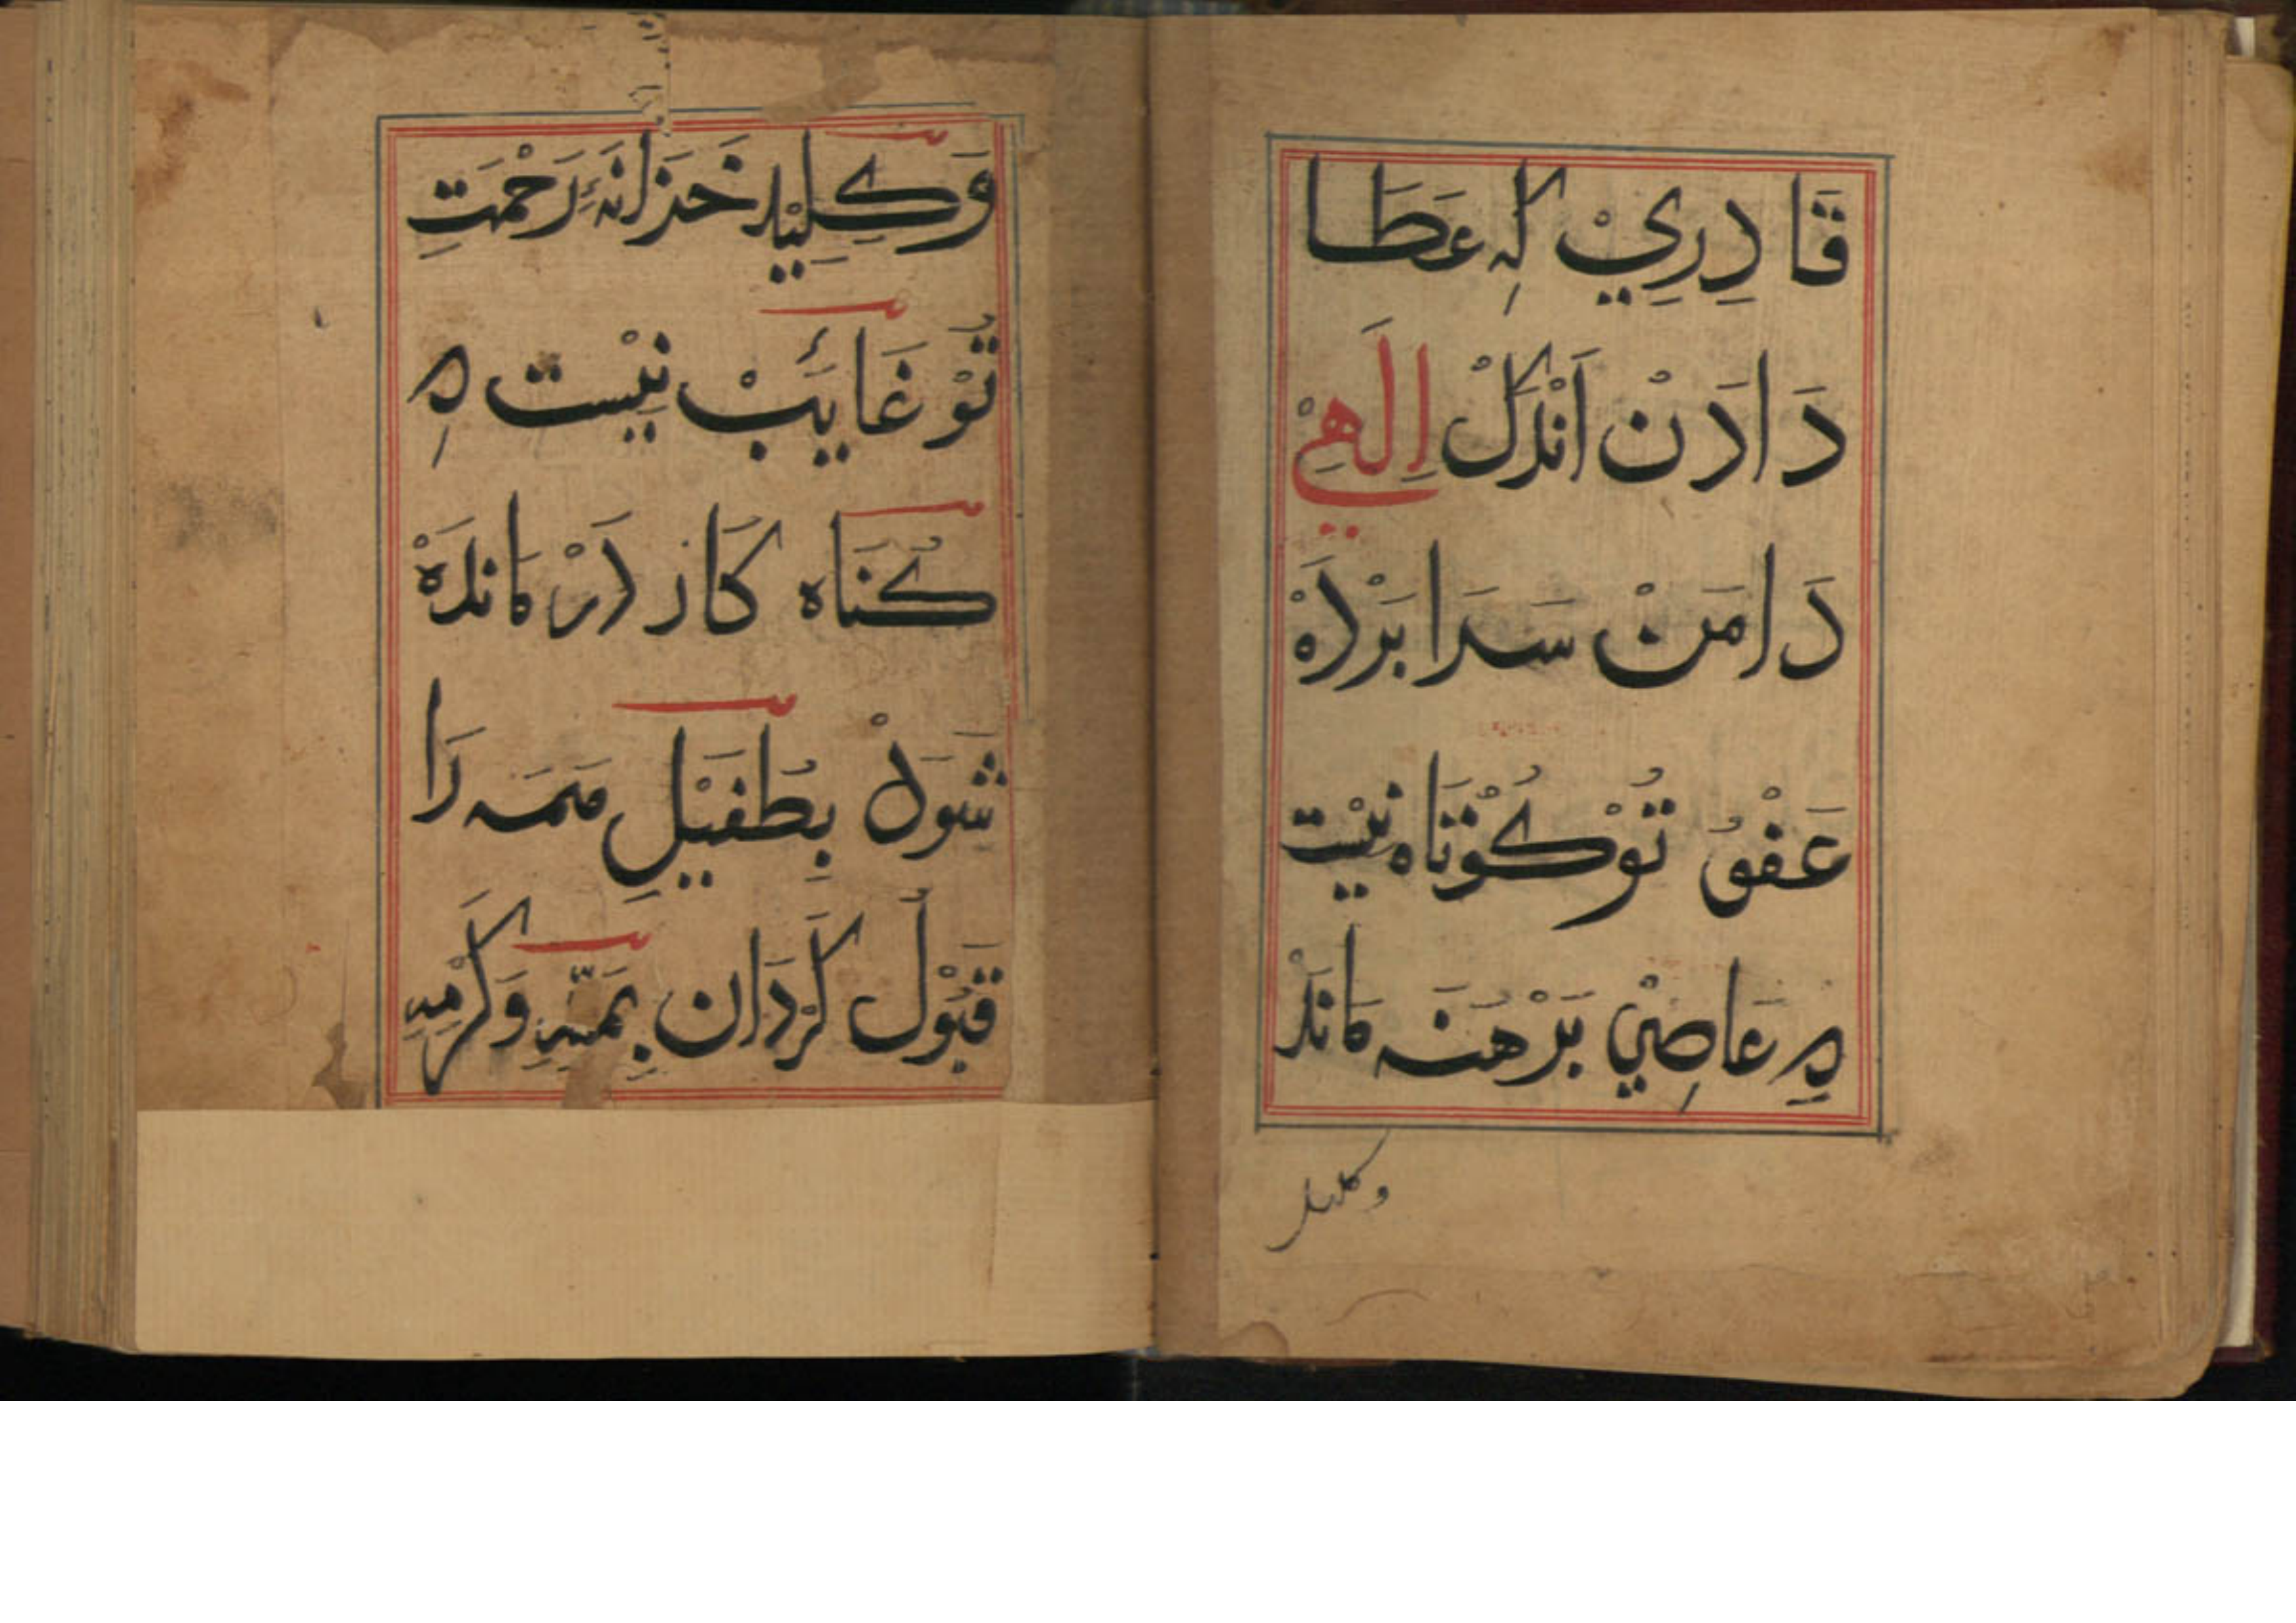 قَادِرِيْ كِه عَطَا
دَادَنْ اَنْدَكْ اِلَهِيْ
دَامَنْ سَرَا بَرْدَهْ
عَفْوُ تُوْ كُوْتَاه نِيْسْت
كِه عَاصِيْ بَرْهَنَه مَانَدْ
و كليد
وَكِلِيْدِ خَزَانَهٔ رَحْمَتِ
تُوْ غَائَبْ نِيْست كِه
كُنَاه كَار دَرْ مَانْدَهْ
شَوَدْ بِطُفَيْلِ هَمَه رَا
قَبُوْل كَرْدَان بِمَنِّهِ وَكَرَمِهِ